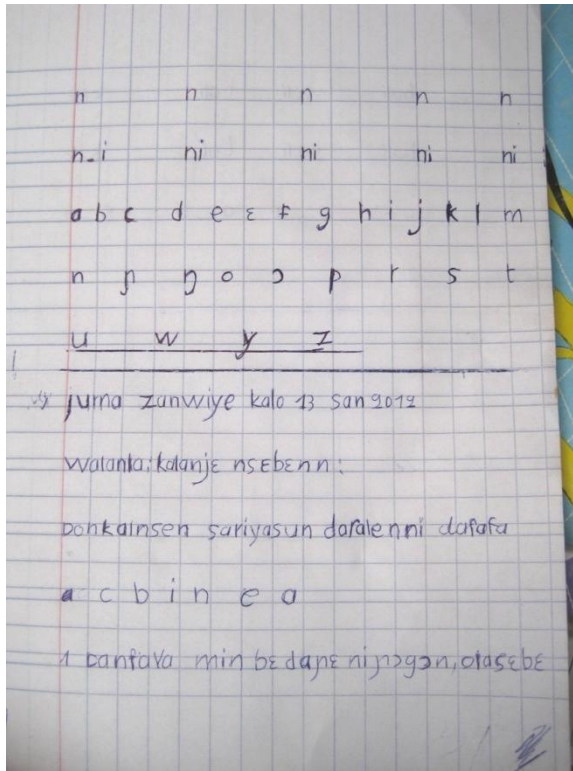 n n n n n
n-i ni ni ni ni
a b c d e ɛ f g h i j k l m
n ɲ ŋ o ɔ p r s t
u w y z
juma zanwiye kalo 13 san 2012
walanta: kalanjɛ nsɛbɛnn:
sariyasun dafalenni dafafa
a c b i n e a
1 min bɛ daɲɛ ni ɲɔgɔn, olasɛbɛ